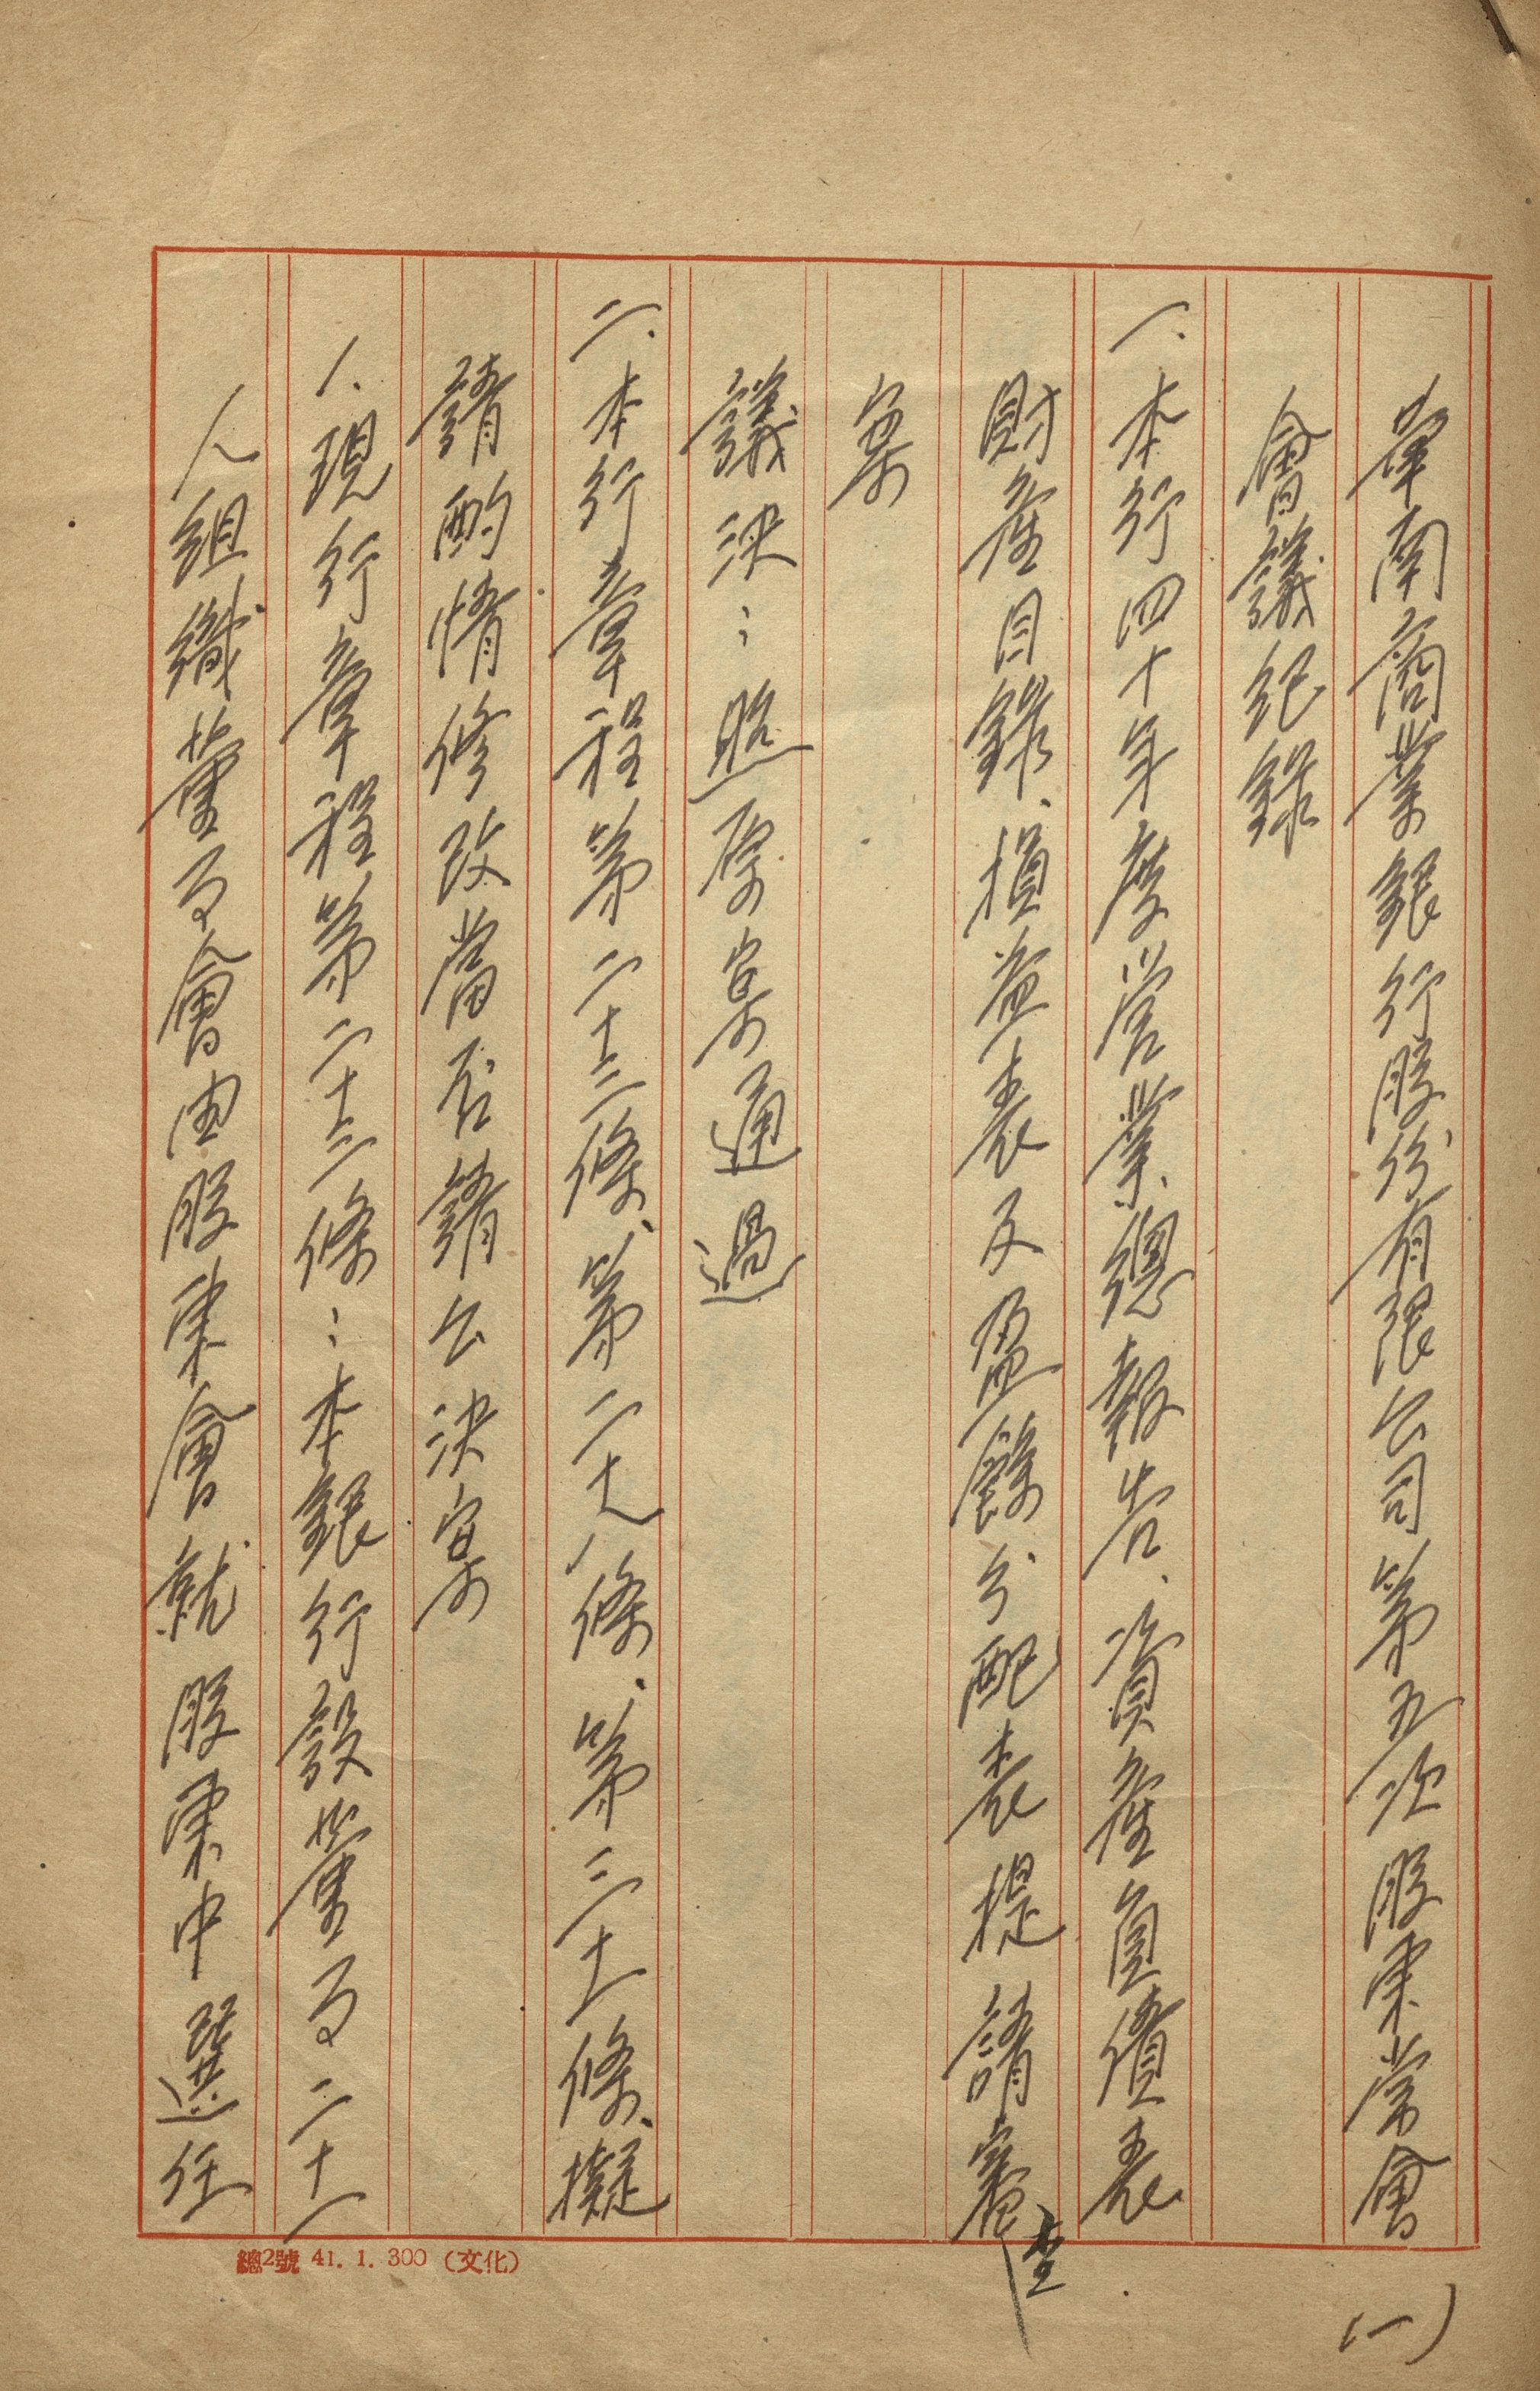 華南商業銀行股份有限公司第五次股東常會
會議紀錄
一、本行四十年度營業總報告、資產負債表
財產目錄、損益表及盈餘分配表提請審查
案
議決：照原案通過
二、本行章程第二十三條、第二十九條、第三十一條、擬
請酌情修改當否請公決案
1.現行章程第二十三條：本銀行設董事二十一
人組織董事會由股東會就股東中選任
(一)
總2號 41.1.300（文化）